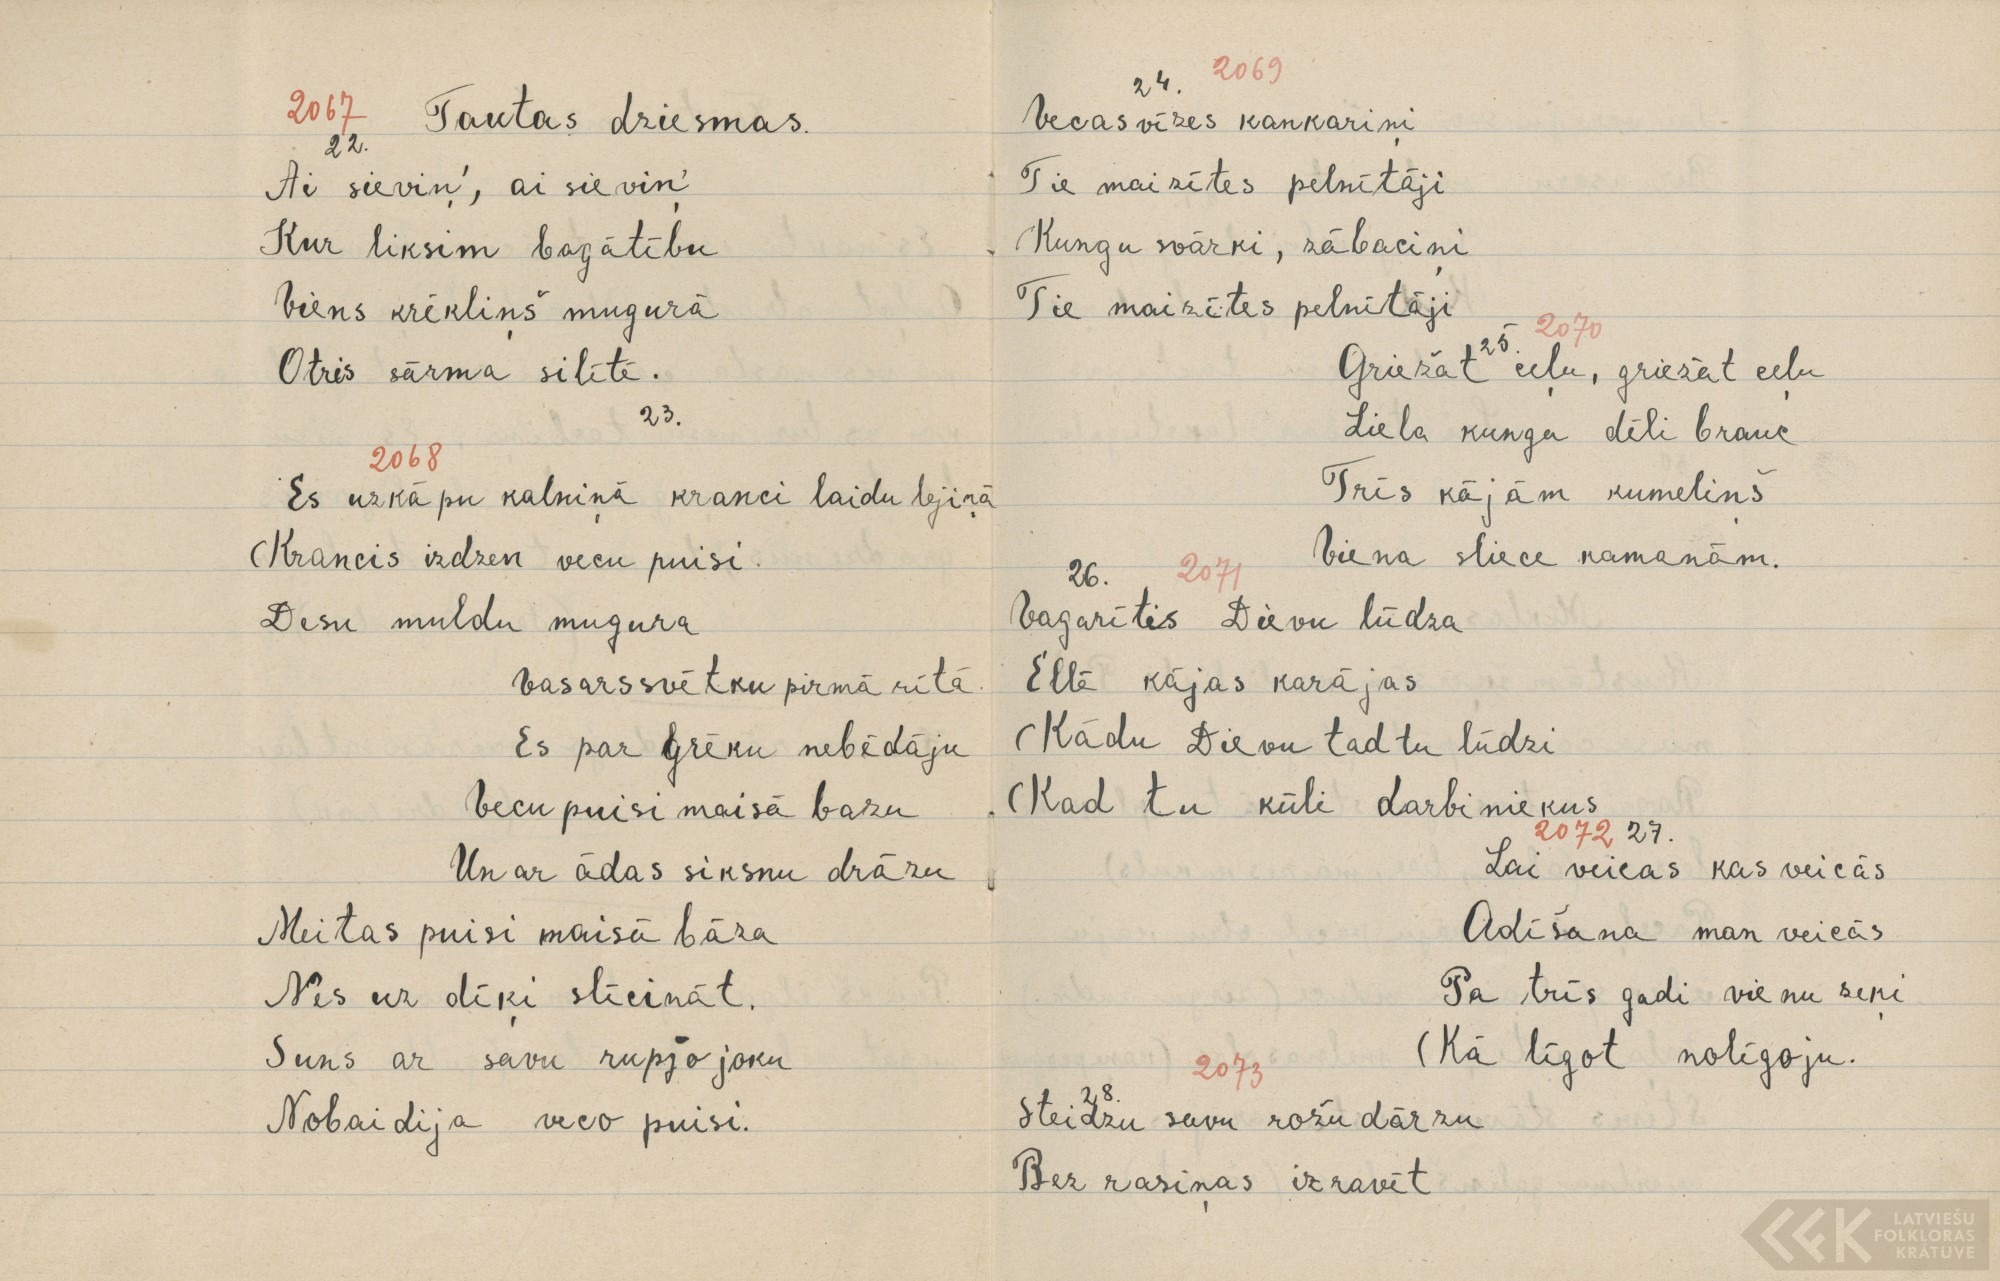 2067 Tautas dziesmas.
22.
Ai sieviņ', ai sieviņ'
Kur liksim bagātību
Viens krēkliņš mugurā
Otris sārma silītē.
23.
2068
Es uzkāpu kalniņā kranci laidu lejiņā
Krancis izdzen vecu puisi.
Desu muldu mugura
Vasarssvētku pirmā rītā.
Es par grēku nebēdāju
Vecu puisi maisā bazu
Un ar ādas siksnu drāzu
Meitas puisi maisā bāza
Nes uz dīķi slīcināt.
Suns ar savu rupjo joku
Nobaidija veco puisi.
24. 2069
Vecas vīzes kankariņi
Tie maizītes pelnītāji
Kungu svārki, zābaciņi
Tie maizītes pelnītāji
25. 2070
Griežāt ceļu, griežāt ceļu
Liela kunga dēli brauc
Trīs kājām kumeliņš
Viena sliece kamanām.
26. 2071
Vagarītis Dievu lūdza
Ellē kājas karājas
Kādu Dievu tad tu lūdzi
Kad tu kūli darbiniekus
2072 27.
Lai veicas kas veicās
Adīšana man veicās
Pa trīs gadi vienu zeķi
Kā līgot nolīgoju.
28. 2073
Steidzu savu rožu dārzu
Bez rasiņas izravēt
LATVIEŠU
FOLKLORAS
KRĀTUVE